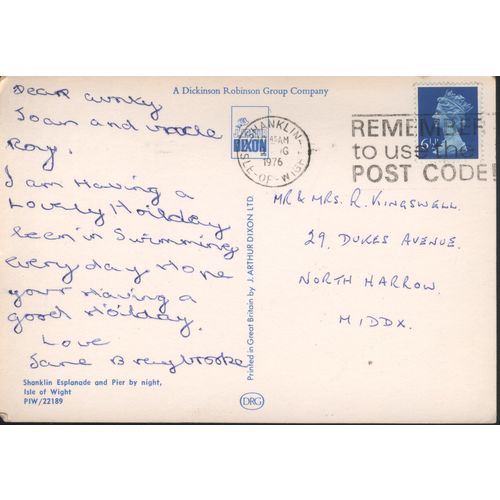 A Dickinson Robinson Group Company
Dear aunty
Joan and uncle
Roy.
I am Having a
Lovely Hoilday
been in Swimming
every day Hope
your Having a
good Hoilday.
Love
Jane Braybrooke
Shanklin Esplanade and Pier by night,
Isle of Wight
PIW/22189
DIXON
Printed in Great Britain by J. ARTHUR DIXON LTD
DRG
SHANKLIN
45AM
1976
ISLE-OF-WIGHT
REMEMBER
to use the
POST CODE!
6½P
MR & MRS. R. KINGSWELL.
29, DUKES AVENUE.
NORTH HARROW.
MIDDX.